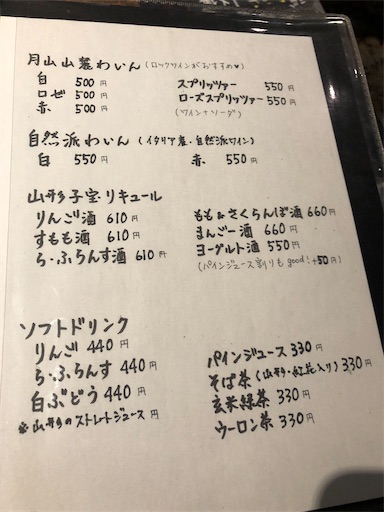 月山山麓わいん(ロックワインがおすすめ♥)
白 500円
ロゼ 500円
赤 500円
スプリッツァー 550円
ローズスプリッツァー 550円
(ワイン+ソーダ)
自然派わいん(イタリア産・自然派ワイン)
白 550円 赤 550円
山形子宝リキュール
りんご酒 610円
すもも酒 610円
ら・ふらんす酒 610円
もも&さくらんぼ酒 660円
まんごー酒 660円
ヨーグルト酒 550円
(パインジュース割りもgood!+50円)
ソフトドリンク
りんご 440円
ら・ふらんす 440円
白ぶどう 440円
※山形のストレートジュース円
パインジュース 330円
そば茶(山形・紅花入り) 330円
玄米緑茶 330円
ウーロン茶 330円